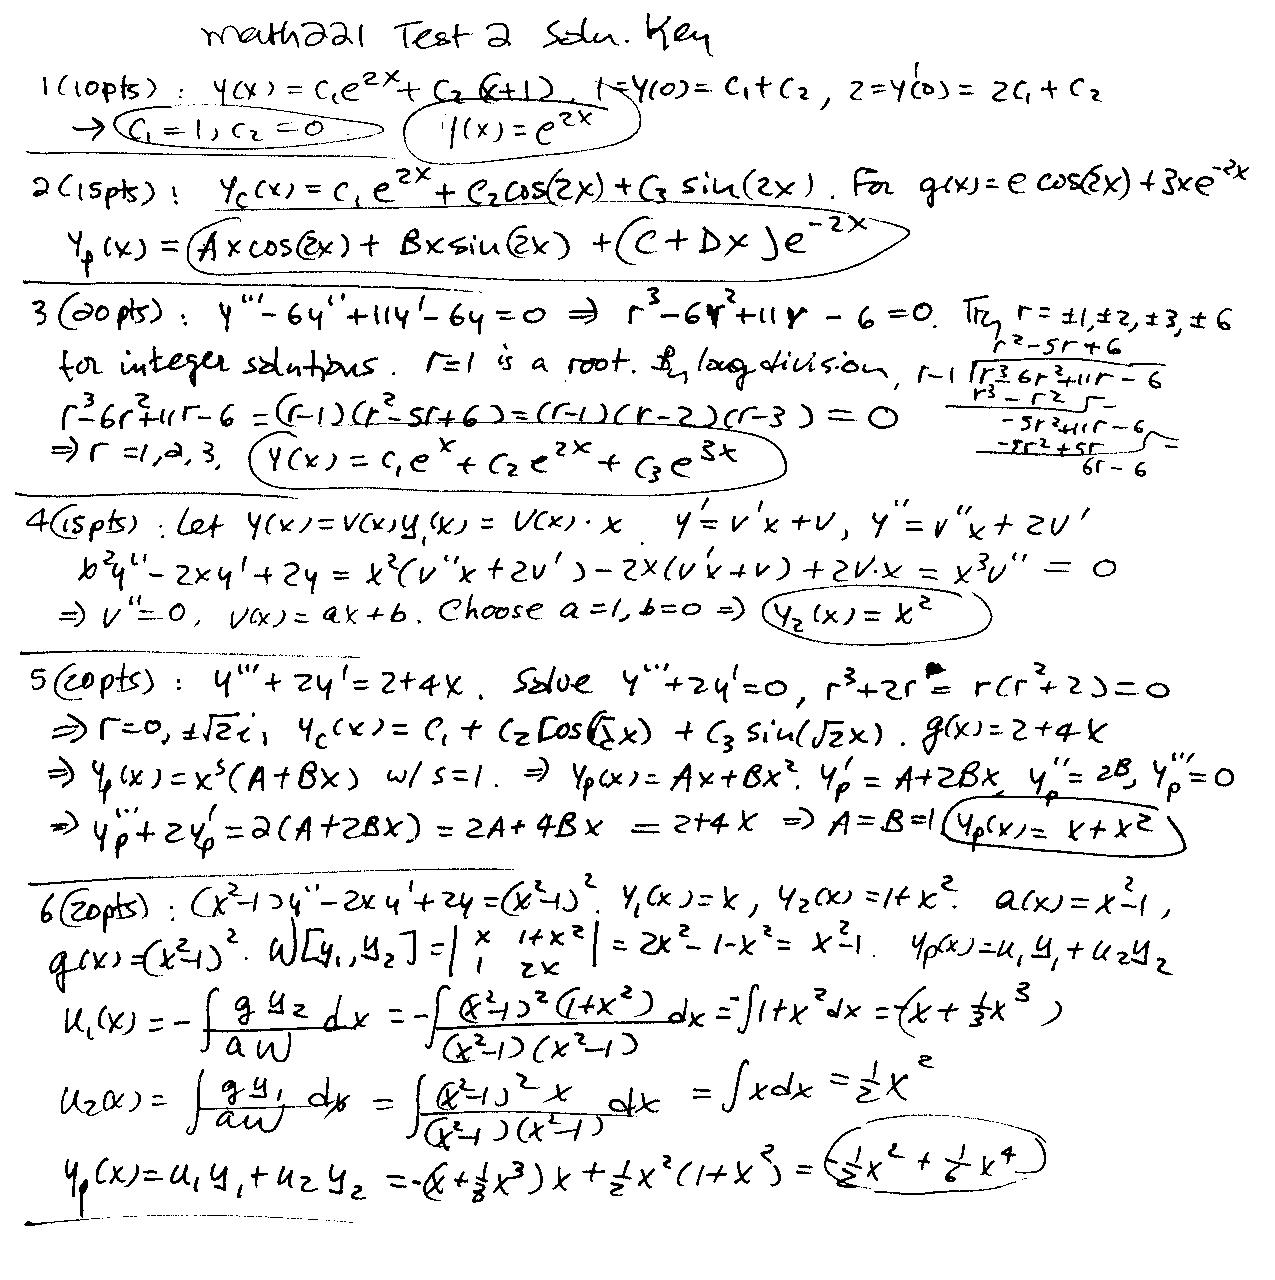 math221 Test 2 Soln. Key
1(10pts): y(x) = c₁e^{2x} + c₂(x+1). 1=y(0)= c₁+c₂, 2=y'(0)= 2c₁+c₂
→ c₁=1, c₂=0 y(x)=e^{2x}
2(15pts): y_c(x) = c₁e^{2x} + c₂cos(2x) + c₃ sin(2x). For g(x)= e cos(2x)+3xe^{-2x}
y_p(x) = Ax cos(2x) + Bx sin(2x) + (C+Dx)e^{-2x}
3(20pts): y''' - 6y'' + 11y' - 6y = 0 ⇒ r³-6r²+11r - 6 = 0. Try r = ±1, ±2, ±3, ±6
for integer solutions. r=1 is a root. By long division, r-1 √ r³-6r²+11r-6
r²-5r+6
r³-r²
r³-6r²+11r-6 = (r-1)(r²-5r+6) = (r-1)(r-2)(r-3) = 0
-5r²+11r-6
⇒ r=1,2,3, y(x) = c₁e^x + c₂e^{2x} + c₃e^{3x}
-5r²+5r =
6r-6
4(15pts): Let y(x)=v(x)y₁(x) = v(x)·x y'=v'x+v, y''=v''x+2v'
x²y''-2xy'+2y = x²(v''x+2v')-2x(v'x+v)+2v·x = x³v'' = 0
⇒ v''=0, v(x)=ax+b. Choose a=1, b=0 ⇒ y₂(x)=x²
5(20pts): y'''+2y'=2+4x. Solve y'''+2y'=0, r³+2r = r(r²+2)=0
⇒ r=0, ±√2i, y_c(x) = c₁ + c₂cos(√2x) + c₃ sin(√2x). g(x)=2+4x
⇒ y_p(x)=x^s(A+Bx) w/ s=1. ⇒ y_p(x)=Ax+Bx². y_p'=A+2Bx, y_p''=2B, y_p'''=0
⇒ y_p'''+2y_p'=2(A+2Bx)=2A+4Bx = 2+4x ⇒ A=B=1 y_p(x)= x+x²
6(20pts): (x²-1)y''-2xy'+2y=(x²-1)². y₁(x)=x, y₂(x)=1+x². a(x)=x²-1,
g(x)=(x²-1)². W[y₁,y₂]=|x 1+x²; 1 2x| = 2x²-1-x² = x²-1. y_p(x)=u₁y₁+u₂y₂
u₁(x) = -∫ gy₂/aW dx = -∫ (x²-1)²(1+x²)/(x²-1)(x²-1) dx = -∫1+x²dx = -(x+⅓x³)
u₂(x) = ∫ gy₁/aW dx = ∫ (x²-1)²x/(x²-1)(x²-1) dx = ∫xdx = ½x²
y_p(x)=u₁y₁+u₂y₂ = -(x+⅓x³)x+½x²(1+x²) = -½x²+⅙x⁴